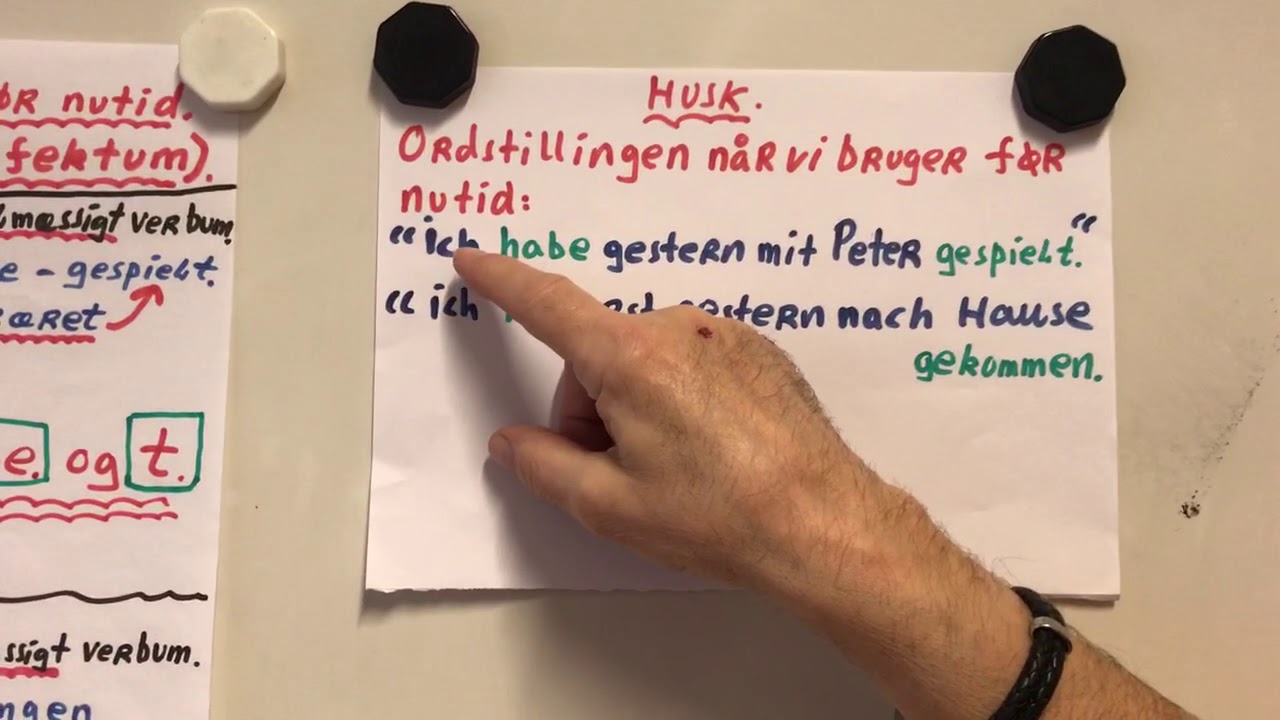 ØR nutid.
fektum).
mæssigt verbum.
e - gespielt.
æret
e. og t.
ssigt verbum.
ngen
HUSK.
Ordstillingen når vi bruger før
nutid:
"ich habe gestern mit Peter gespielt."
"ich gestern nach Hause
gekommen.